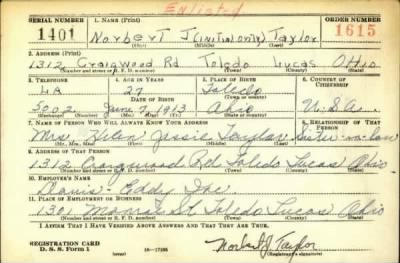 Enlisted
SERIAL NUMBER 1. NAME (Print) ORDER NUMBER
1401 Norbert J (initial only) Taylor 1615
(First) (Middle) (Last)
2. ADDRESS (Print)
1312 Craigwood Rd Toledo Lucas Ohio
(Number and street or R. F. D. number) (Town) (County) (State)
3. TELEPHONE 4. AGE IN YEARS 5. PLACE OF BIRTH 6. COUNTRY OF CITIZENSHIP
LA 27 Toledo
DATE OF BIRTH (Town or county)
5002 June 7, 1913 Ohio U.S.A.
(Exchange) (Number) (Mo.) (Day) (Yr.) (State or country)
7. NAME OF PERSON WHO WILL ALWAYS KNOW YOUR ADDRESS 8. RELATIONSHIP OF THAT PERSON
Mrs. Helen Jessie Taylor Sister-in-law
(Mr., Mrs., Miss) (First) (Middle) (Last)
9. ADDRESS OF THAT PERSON
1312 Craigwood Rd Toledo Lucas Ohio
(Number and street or R. F. D. number) (Town) (County) (State)
10. EMPLOYER'S NAME
Inc.
11. PLACE OF EMPLOYMENT OR BUSINESS
St Toledo Lucas Ohio
(Number and street or R. F. D. number) (Town) (County) (State)
I AFFIRM THAT I HAVE VERIFIED ABOVE ANSWERS AND THAT THEY ARE TRUE.
REGISTRATION CARD
D. S. S. Form 1
Norbert J Taylor
(Registrant's signature)